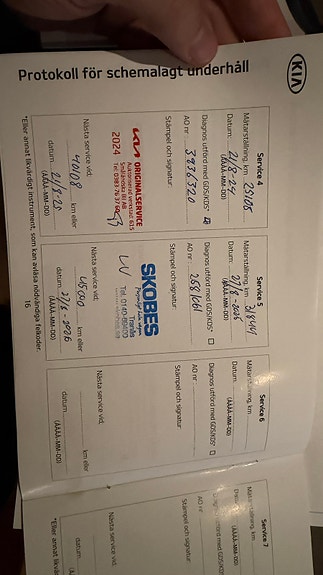 KIA
Protokoll för schemalagt underhåll
Service 4
Mätarställning, km 25105
Datum: 21/8-24
(ÅÅÅÅ-MM-DD)
Diagnos utförd med GDS/KDS*
AO nr 3936320
Stämpel och signatur:
KIA ORIGINALSERVICE
2024
Auktoriserad verkstad 615
Småländska Bil AB
Nästa service vid:
40108 km eller
datum 21/8-25
(ÅÅÅÅ-MM-DD)
Service 5
Mätarställning, km
Datum:
(ÅÅÅÅ-MM-DD)
Diagnos utförd med GDS/KDS*
AO nr 2681061
Stämpel och signatur
SKOBES
Tranås
LV
Nästa service vid:
45000 km eller
datum 27/8-2026
(ÅÅÅÅ-MM-DD)
Service 6
Mätarställning, km
Datum:
(ÅÅÅÅ-MM-DD)
Diagnos utförd med GDS/KDS*
AO nr
Stämpel och signatur
Nästa service vid:
km eller
datum
(ÅÅÅÅ-MM-DD)
*Eller annat likvärdigt instrument, som kan avläsa nödvändiga felkoder.
16
Service 7
Mätarställning, km
Diagnos utförd med GDS/K
AO nr
Stämpel och signatur
Nästa service vid:
datum
*Eller annat likvärd